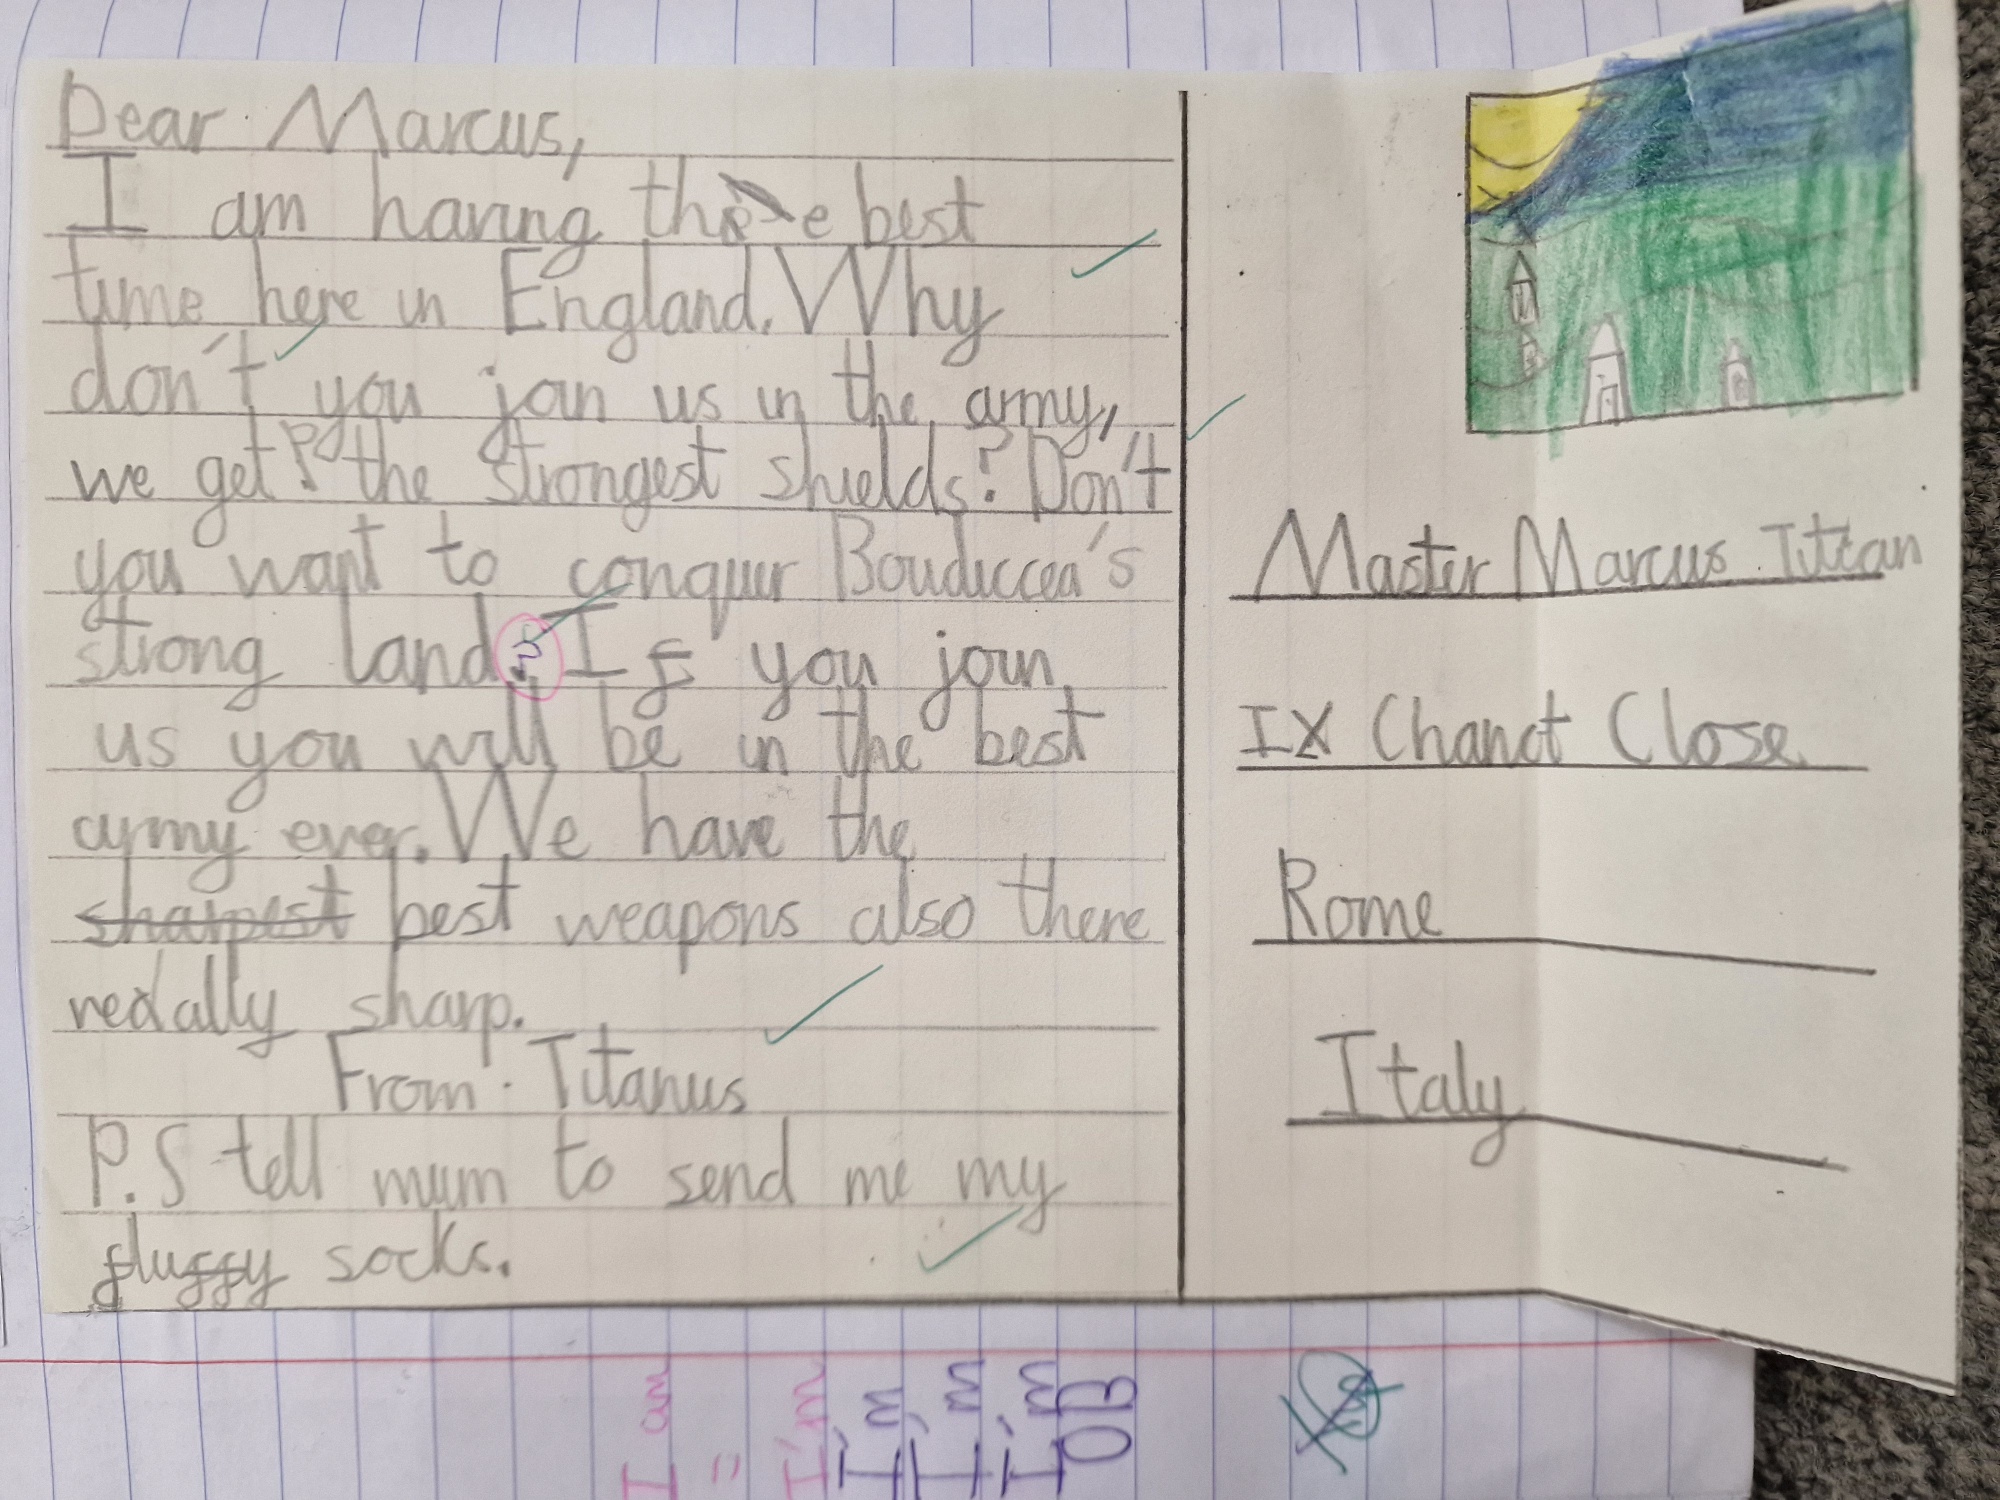 Dear Marcus,
I am having the best
time here in England. Why
don't you join us in the army,
we get the strongest shields? Don't
you want to conquer Bouduccea's
strong land? If you join
us you will be in the best
army ever. We have the
sharpest best weapons also there
really sharp.
From Titanus
P.S tell mum to send me my
fluffy socks.
Master Marcus Titian
IX Chariot Close
Rome
Italy
I am
=
I'm
I'm
I'm
I'm
OB